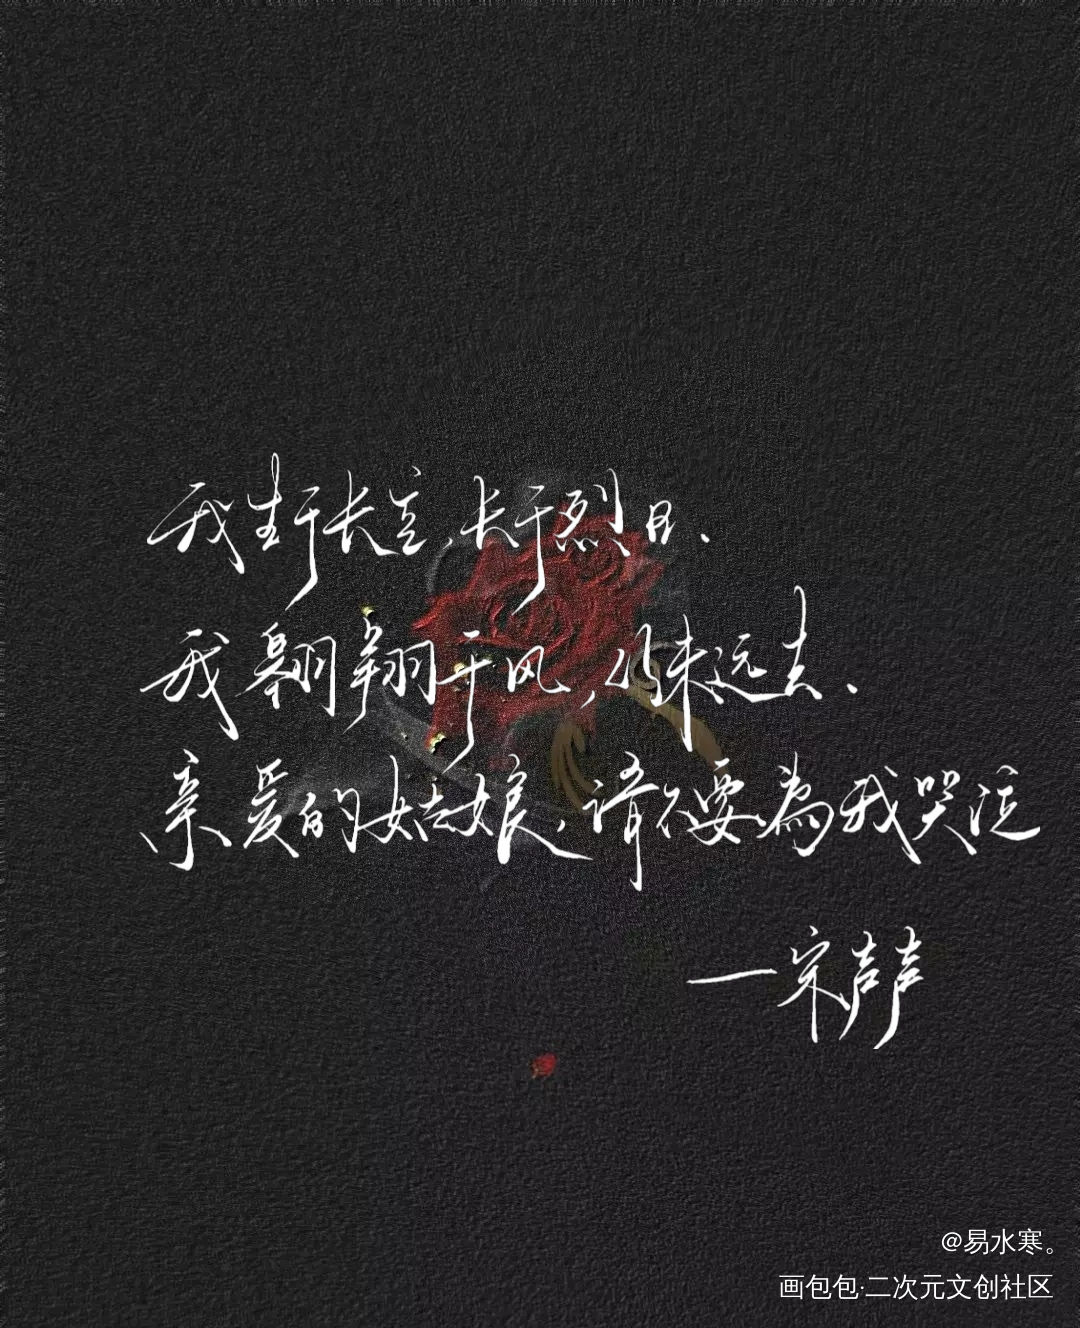 我生于长空,长于烈日.
我翱翔于风,从未远去.
亲爱的姑娘,请不要為我哭泣
—宋声声
@易水寒。
画包包·二次元文创社区